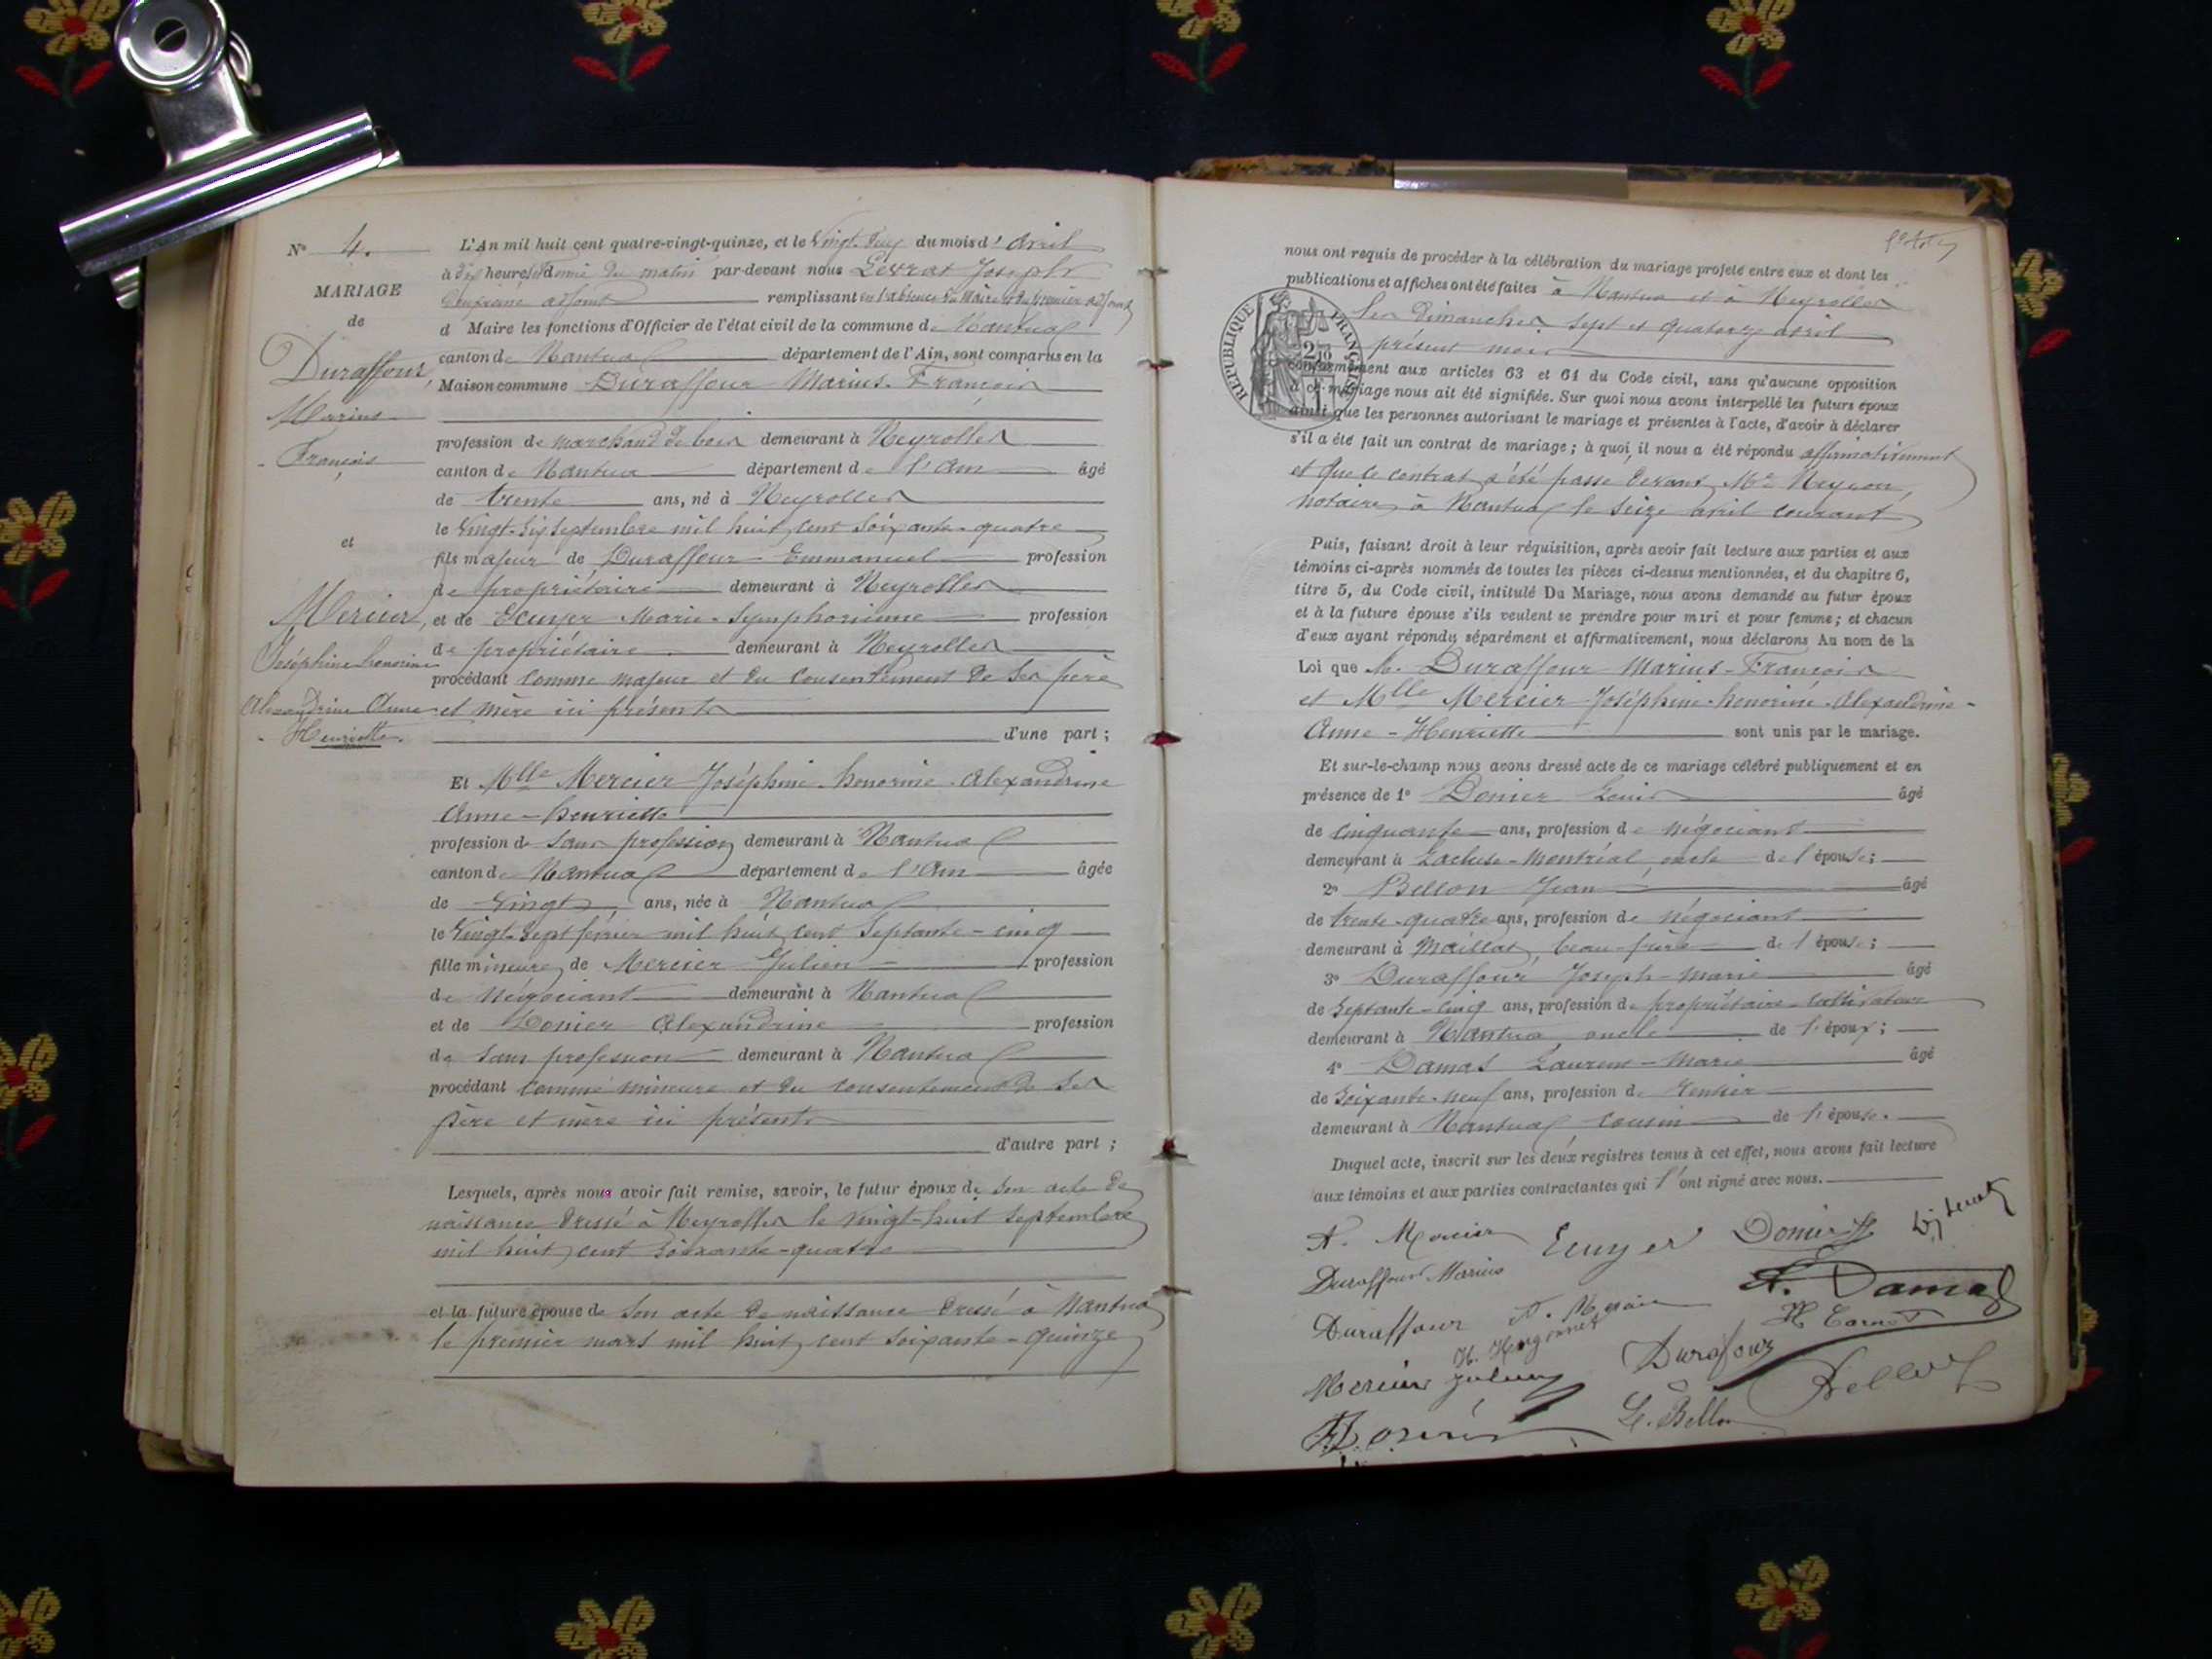 N° 4.
MARIAGE
de
Duraffour,
Marius
François
et
Mercier,
Joséphine honorine
Alexandrine Anne
Henriette.
L'An mil huit cent quatre-vingt-quinze, et le Vingt du mois d'avril
à dix heures et demie du matin par-devant nous Levrat Joseph
Deuxième adjoint remplissant en l'absence du Maire et du premier adjoint
d Maire les fonctions d'Officier de l'état civil de la commune de Nantua
canton de Nantua département de l'Ain, sont comparus en la
Maison commune Duraffour Marius-François
profession de marchand de bois demeurant à Neyrolles
canton de Nantua département de l'Ain âgé
de trente ans, né à Neyrolles
le Vingt-six septembre mil huit cent soixante-quatre
fils majeur de Duraffour Emmanuel profession
de propriétaire demeurant à Neyrolles
et de Ecuyer Marie-Symphorienne profession
de propriétaire demeurant à Neyrolles
procédant comme majeur et du consentement de ses père
et mère ici présents
d'une part ;
Et Mlle Mercier Joséphine-honorine-Alexandrine
Anne-henriette
profession de sans profession demeurant à Nantua
canton de Nantua département de l'Ain âgée
de Vingt ans, née à Nantua
le Vingt-sept février mil huit cent septante-cinq
fille mineure de Mercier Julien profession
de négociant demeurant à Nantua
et de Donier Alexandrine profession
de sans profession demeurant à Nantua
procédant comme mineure et du consentement de ses
père et mère ici présents
d'autre part ;
Lesquels, après nous avoir fait remise, savoir, le futur époux de son acte de
naissance dressé à Neyrolles le vingt-huit septembre
mil huit cent soixante-quatre
et la future épouse de son acte de naissance dressé à Nantua
le premier mars mil huit cent soixante-quinze
nous ont requis de procéder à la célébration du mariage projeté entre eux et dont les
publications et affiches ont été faites à Nantua et à Neyrolles
les dimanches sept et quatorze avril
présent mois
REPUBLIQUE FRANÇAISE
conformément aux articles 63 et 64 du Code civil, sans qu'aucune opposition
à ce mariage nous ait été signifiée. Sur quoi nous avons interpellé les futurs époux
ainsi que les personnes autorisant le mariage et présentes à l'acte, d'avoir à déclarer
s'il a été fait un contrat de mariage ; à quoi, il nous a été répondu affirmativement
et que le contrat a été passé devant Me notaire
à Nantua le seize avril courant
Puis, faisant droit à leur réquisition, après avoir fait lecture aux parties et aux
témoins ci-après nommés de toutes les pièces ci-dessus mentionnées, et du chapitre 6,
titre 5, du Code civil, intitulé Du Mariage, nous avons demandé au futur époux
et à la future épouse s'ils veulent se prendre pour mari et pour femme ; et chacun
d'eux ayant répondu séparément et affirmativement, nous déclarons Au nom de la
Loi que M. Duraffour Marius-François
et Mlle Mercier Joséphine-honorine-Alexandrine-
Anne-Henriette sont unis par le mariage.
Et sur-le-champ nous avons dressé acte de ce mariage célébré publiquement et en
présence de 1° Donier Louis âgé
de cinquante ans, profession de négociant
demeurant à Lacluse-Montréal, oncle de l'épouse ;
2° Bellon Jean âgé
de trente-quatre ans, profession de négociant
demeurant à Maillat, beau-frère de l'épouse ;
3° Duraffour Joseph-Marie âgé
de Septante-cinq ans, profession de propriétaire-cultivateur
demeurant à Nantua, oncle de l'époux ;
4° Damas Laurent-Marie âgé
de Soixante-neuf ans, profession de Rentier
demeurant à Nantua cousin de l'épouse.
Duquel acte, inscrit sur les deux registres tenus à cet effet, nous avons fait lecture
aux témoins et aux parties contractantes qui l'ont signé avec nous.
A. Mercier Ecuyer Donier
Duraffour Marius
L. Damas
Duraffour
Mercier Julien
Durafour
L. Bellon